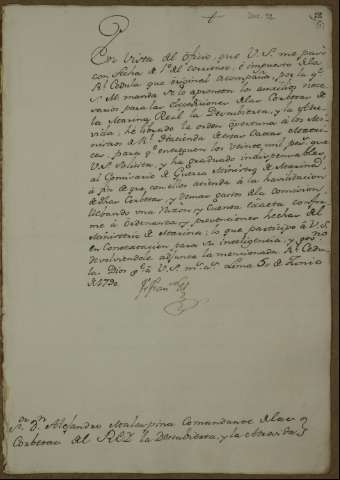 En Vista del Oficio, que V.S. me pasó
con fecha de 1º del corriente, é impuesto de la
Rl Cedula que original acompaña, por la qe
S. M. manda se le apronten los auxilios nece
sarios para las expediciones de las Corbetas de
la Marina Real la Descubierta, y la Atre
vida; he librado la orden oportuna á los Mi
nistros de Rl Hacienda de estas Caxas
para qe entreguen los veinte mil ps que
V.S. solicita, y ha graduado indispensables
al Comisario de Guerra Ministro de Marina,
á fin de que con ellos atienda á la habilitacion
de dhas Corbetas, y demas gastos de la comision,
llevando una Razon y Cuenta exacta confor
me á ordenanza y prevenciones hechas al
Ministerio de Marina; lo que participo á V.S.
en Contextacion para su inteligencia, y
devolviendole adjunta la mencionada Rl Cedu
la. Dios gue á V.S. ms as Lima 5 de Junio
de 1790.
Sr Dn Alejandro Malaspina Comandante de las
Corbetas del REY la Descubierta, y la Atrevida